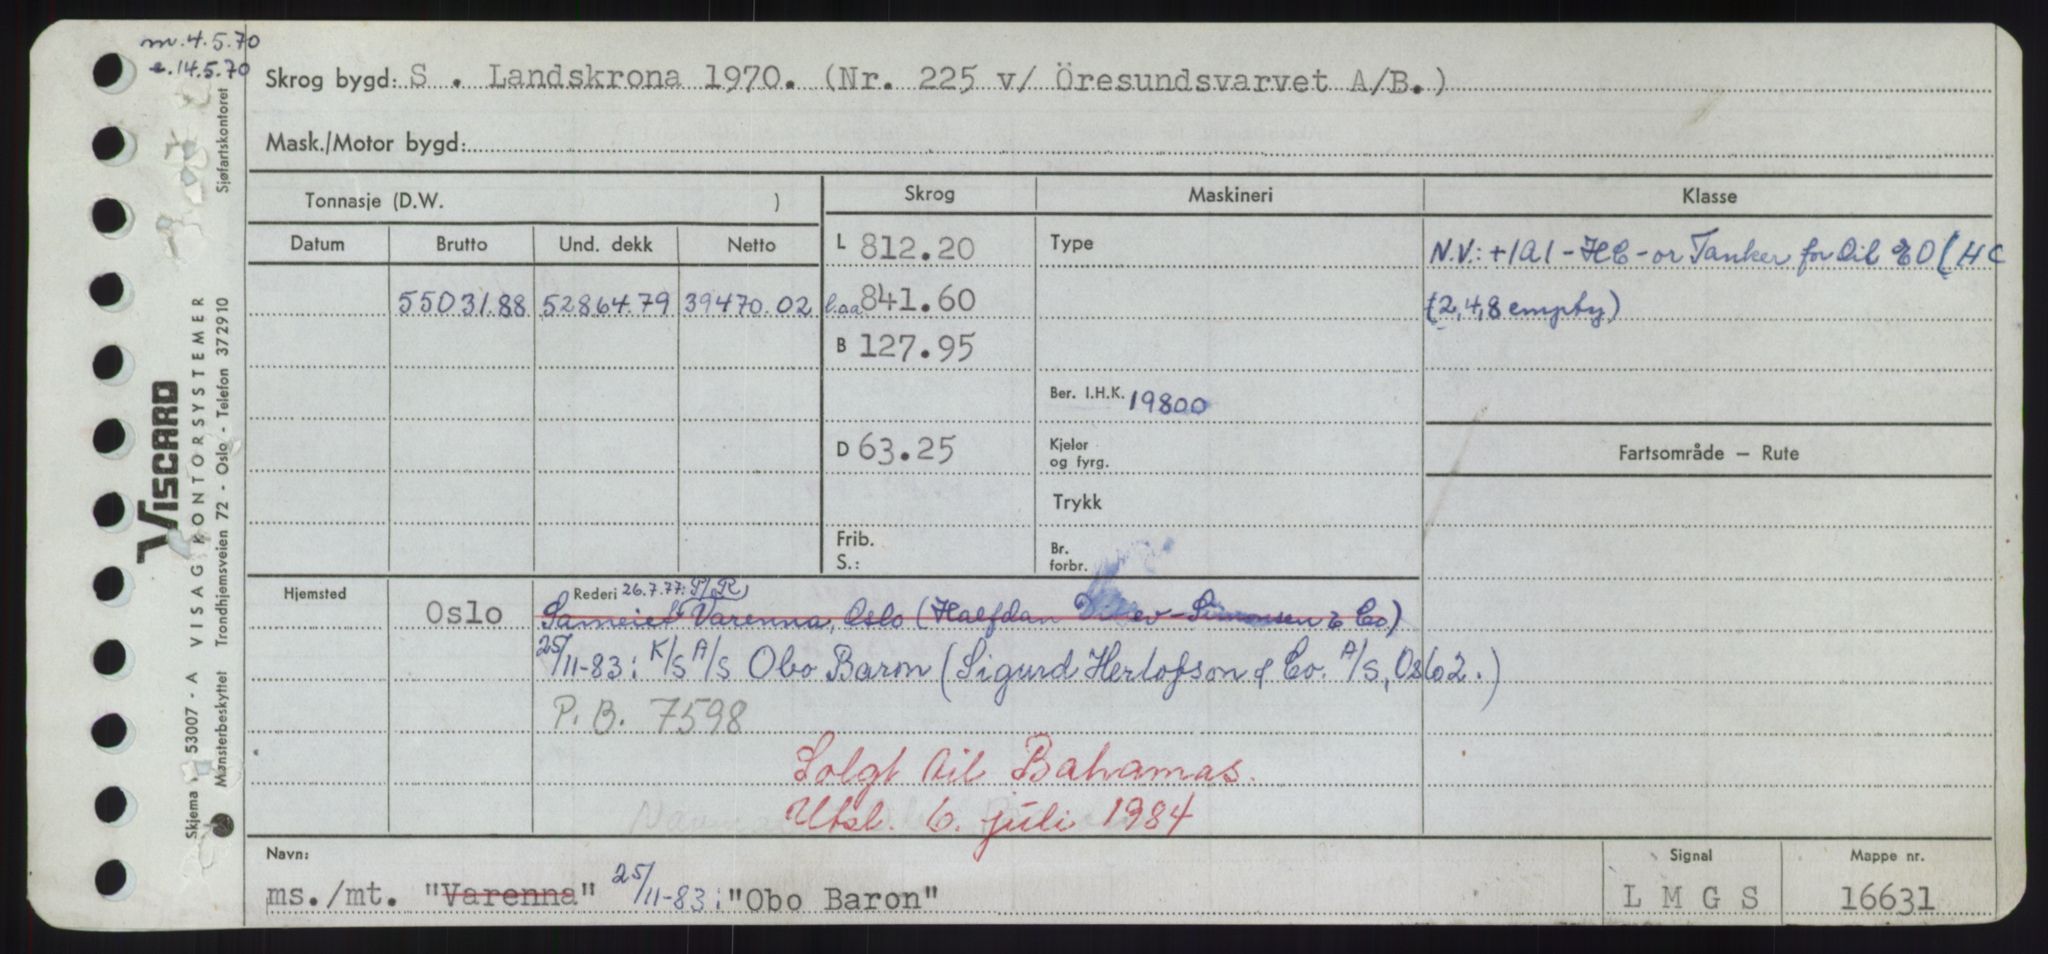 m.4.5.70
e.14.5.70
Skrog bygd: S . Landskrona 1970. (Nr. 225 v/ Öresundsvarvet A/B.)
Mask./Motor bygd:
Tonnasje (D.W. )
Skrog
Maskineri
Klasse
Datum
Brutto
Und. dekk
Netto
55031.88 52864.79 39470.02
L 812.20
l.o.a. 841.60
B 127.95
D 63.25
Frib.
S.:
Type
Ber. I.H.K. 19800
Kjeler
og fyrg.
Trykk
Br.
forbr.
N.V.: +1A1 - HC - or Tanker for Oil EO (HC
(2,4,8 empty)
Fartsområde — Rute
Hjemsted
Oslo
Rederi 26.7.77: P/R
Sameiet Varenna, Oslo (Halfdan Ditlev-Simonsen & Co)
25/11-83: K/S A/S Obo Baron (Sigurd Herlofson & Co. A/S, Oslo 2.)
P.B. 7598
Solgt til Bahamas.
Utsl. 6. juli 1984
Navn:
ms./mt. "Varenna" 25/11-83: "Obo Baron"
Signal
L M G S
Mappe nr.
16631
Skjema 53007 - A VISAG KONTORSYSTEMER
VISCARD
Mønsterbeskyttet Trondhjemsveien 72 - Oslo - Telefon 372910 Sjøfartskontoret